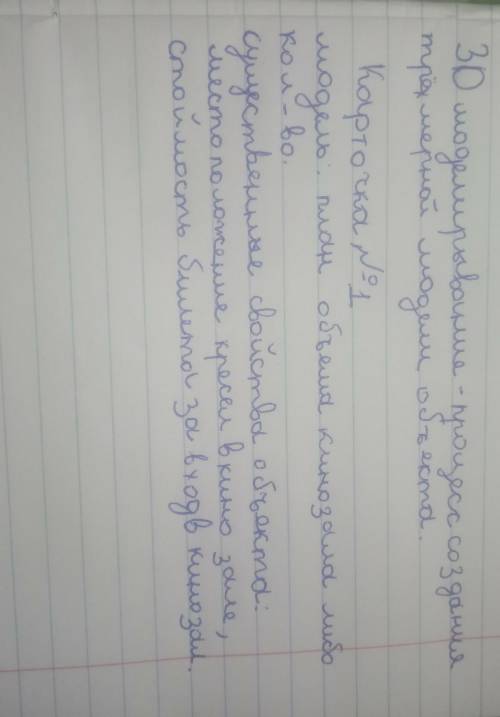 3D моделирывание - процесс создания
трёхмерной модели объекта.
Карточка №1
модель: план объема кинозала либо
кол-во.
существенные свойства объекта:
местоположение кресел в кино зале,
стоймость билета за вход в кинозал.